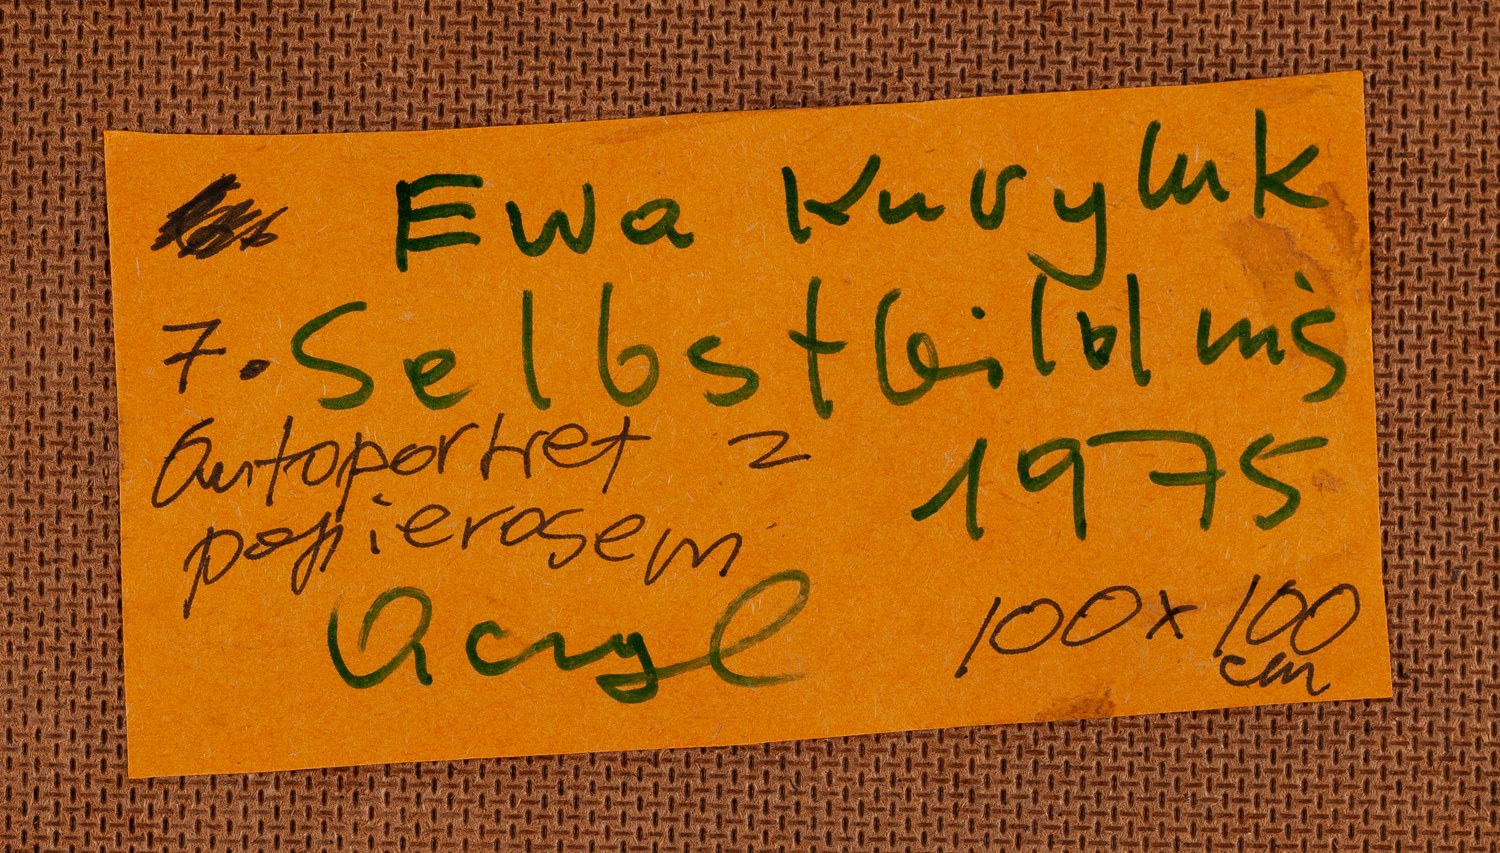 Ewa Kuryluk
7. Selbstbildnis
autoportret z 1975
papierosem
Acryl 100 x 100
cm